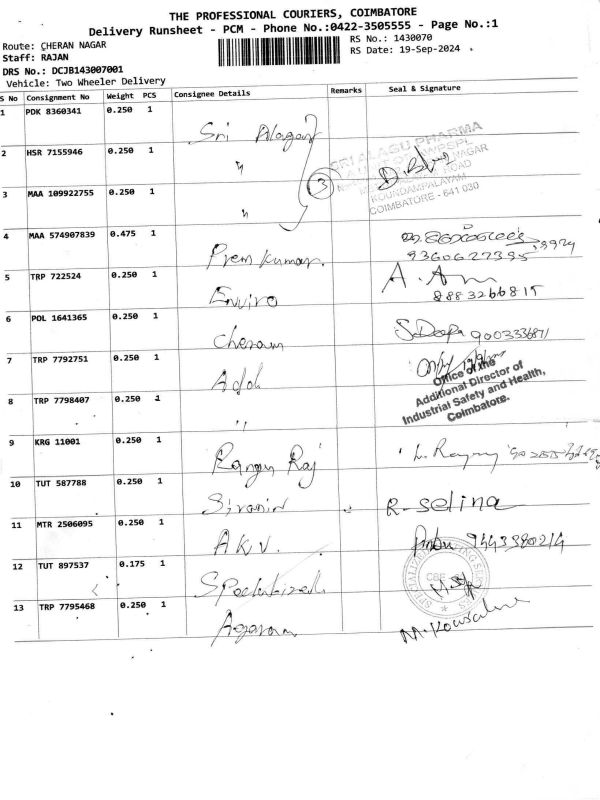 THE PROFESSIONAL COURIERS, COIMBATORE
Delivery Runsheet - PCM - Phone No.:0422-3505555 - Page No.:1
Route: CHERAN NAGAR
RS No.: 1430070
Staff: RAJAN
RS Date: 19-Sep-2024
DRS No.: DCJB143007001
Vehicle: Two Wheeler Delivery
S No Consignment No Weight PCS Consignee Details Remarks Seal & Signature
1 PDK 8360341 0.250 1 Sri Alagar
SRI ALAGU PHARMA
2 HSR 7155946 0.250 1 "
NAGAR
ROAD
KOUNDAMPALAYAM
COIMBATORE - 641 030
3
3 MAA 109922755 0.250 1 "
4 MAA 574907839 0.475 1 Prem Kumar.
9360627395
5 TRP 722524 0.250 1 Enviro A. Am
8883266815
6 POL 1641365 0.250 1 Cheram S.Deepa
7 TRP 7792751 0.250 1 Addl
Office of the
Additional Director of
Industrial Safety and Health,
Coimbatore.
8 TRP 7798407 0.250 1 "
9 KRG 11001 0.250 1 Rangu Raj
10 TUT 587788 0.250 1 R-selina
11 MTR 2506095 0.250 1 AKV. 9443380214
12 TUT 897537 0.175 1
CBE
13 TRP 7795468 0.250 1 Agaram M.Kousalya